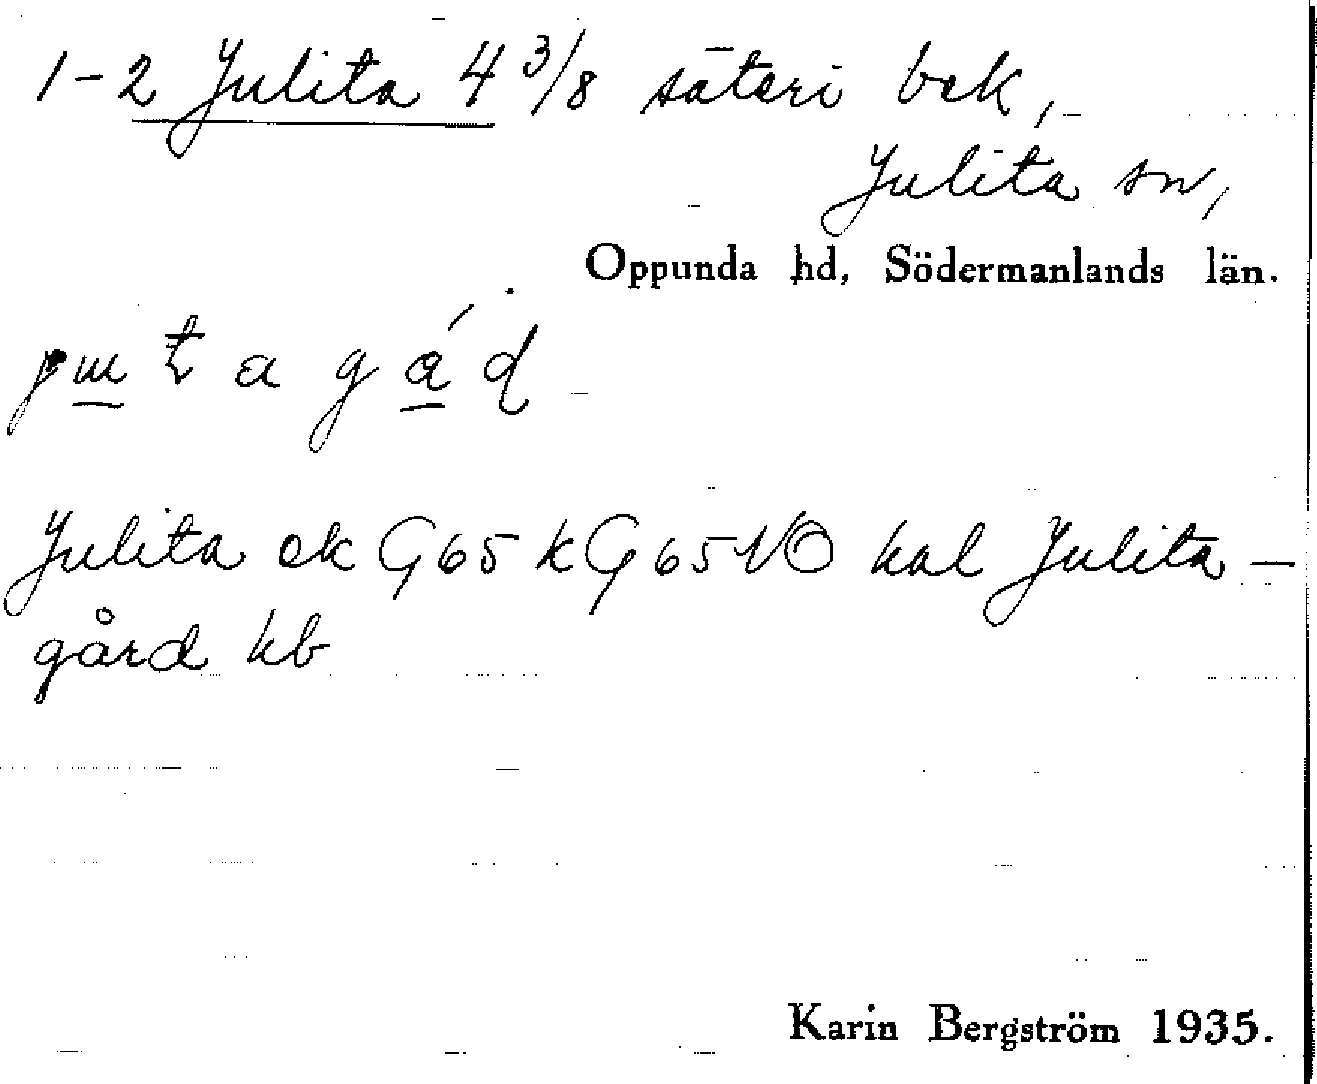 1-2 Julita 4 3/8 säteri bek,
Julita sn,
Oppunda hd, Södermanlands län.
Julita ek G65 k G65 NO kal Julita-
gård kb
Karin Bergström 1935.